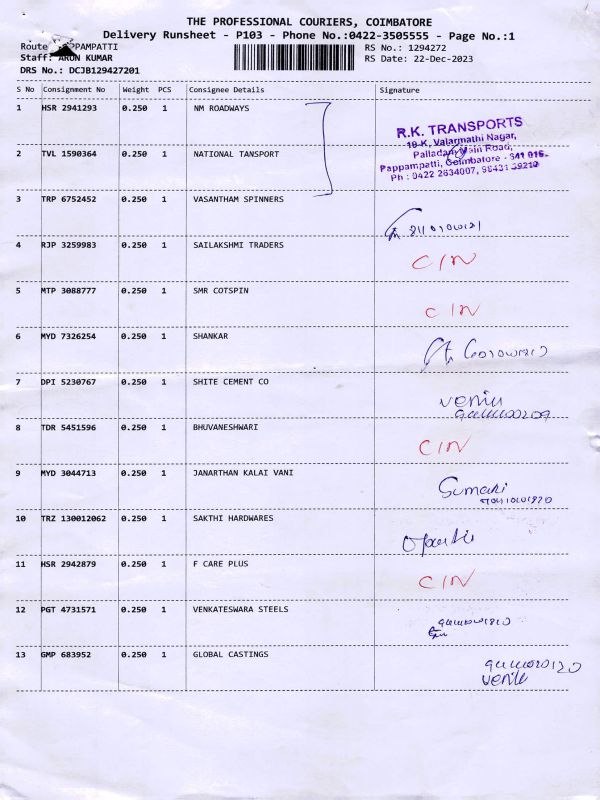 THE PROFESSIONAL COURIERS, COIMBATORE
Delivery Runsheet - P103 - Phone No.:0422-3505555 - Page No.:1
Route PAMPATTI
RS No.: 1294272
Staff: ARUN KUMAR
RS Date: 22-Dec-2023
DRS No.: DCJB129427201
S No Consignment No Weight PCS Consignee Details Signature
1 HSR 2941293 0.250 1 NM ROADWAYS
R.K. TRANSPORTS
18-K, Valarmathi Nagar,
Palladam Main Road,
Pappampatti, Coimbatore - 641 016.
Ph : 0422 2634007, 98431 39210
2 TVL 1590364 0.250 1 NATIONAL TANSPORT
3 TRP 6752452 0.250 1 VASANTHAM SPINNERS
4 RJP 3259983 0.250 1 SAILAKSHMI TRADERS
C/N
5 MTP 3088777 0.250 1 SMR COTSPIN
C/N
6 MYD 7326254 0.250 1 SHANKAR
7 DPI 5230767 0.250 1 SHITE CEMENT CO
8 TDR 5451596 0.250 1 BHUVANESHWARI
C/N
9 MYD 3044713 0.250 1 JANARTHAN KALAI VANI
10 TRZ 130012062 0.250 1 SAKTHI HARDWARES
11 HSR 2942879 0.250 1 F CARE PLUS
C/N
12 PGT 4731571 0.250 1 VENKATESWARA STEELS
13 GMP 683952 0.250 1 GLOBAL CASTINGS